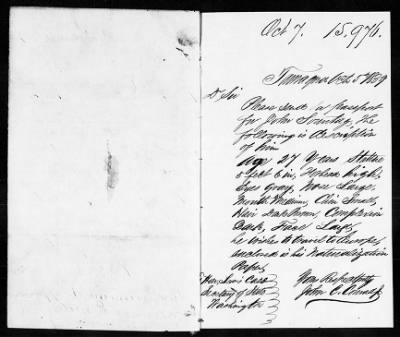 Oct 7. 15,976.
Tamaqua Oct 5th 1859
Dr Sir
Please send a passport
for John Sountag, the
following is description
of him
Age 27 Years Stature
5 feet 6 in, Forehead high,
Eyes Gray, Nose Large,
Mouth Medium, Chin Small,
Hair Dark Brown, Complexion
Dark, Face Large,
he wishes to travel to Europe,
enclosed is his Naturalization
Papers
Hon. Lewis Cass Your Respectfully
Secretary of State John C.
Washington